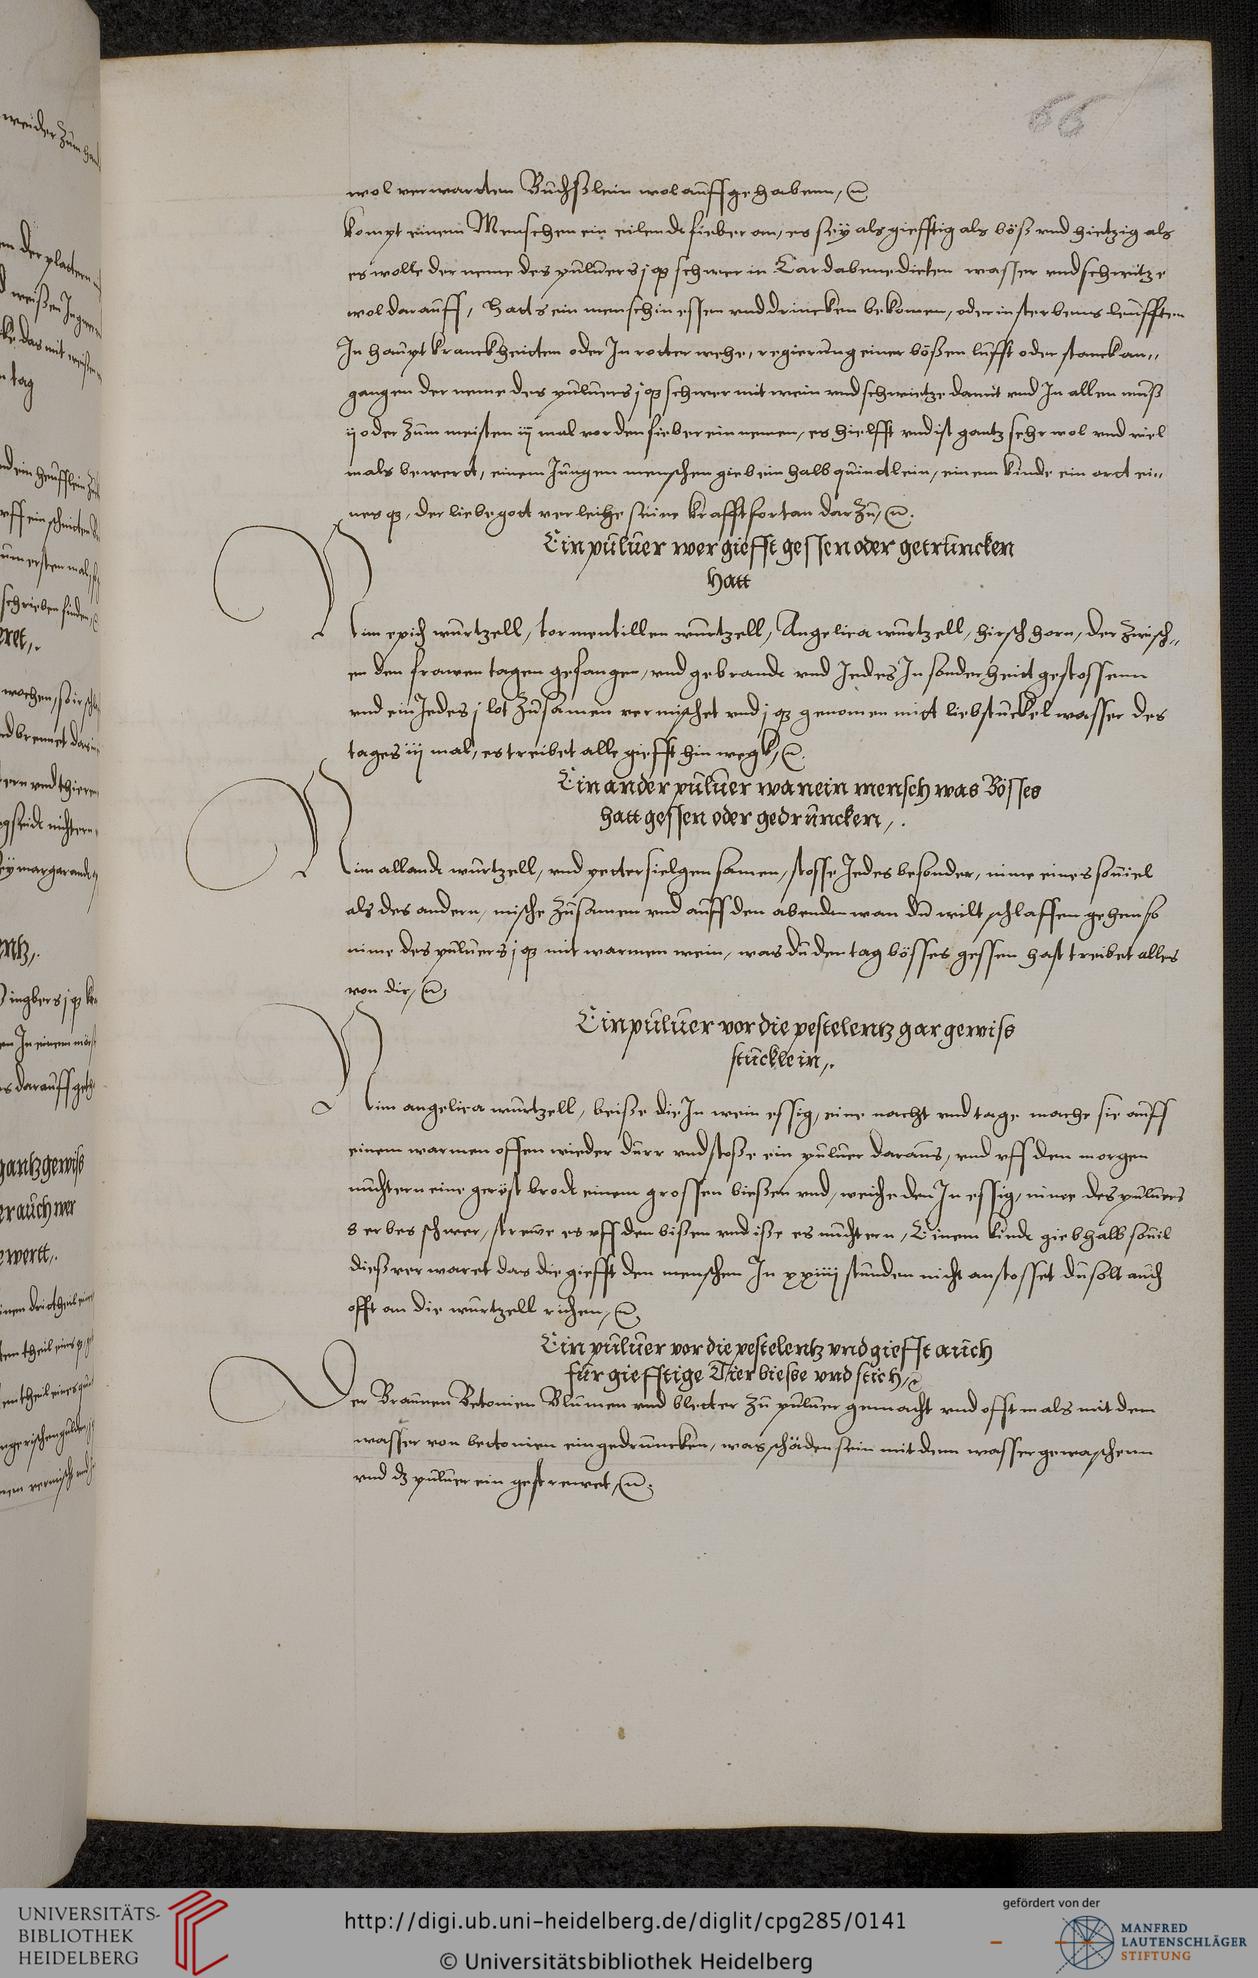 66
wol verwardten Buchßlein wol auffgehabenn, etc.
kompt einem Menschen ein eilende fieber an, es sey als giefftig als böß vnd hietzig als
es wolle der neme des puluers j q̃ schwer in Cardabenedicten wasser vnd schwitze
wol darauff, Hatts ein mensch in essen vnd drincken bekomen, oder in sterbenns leufften
In haupt kranckheitten oder In rotter wehe, regierung einer bößen lufft oder stanck an,,
gangen der neme des puluers j q̃ schwer mit wein vnd schwietze damit vnd In allen muß
ij oder zum meisten iij mal vor den fieber ein nemen, es hielfft vnd ist gantz sehr wol vnd viel
mals bewerdt, einem Jungen menschen gieb ein halb quindtlein, einem kinde ein ordt ei,,
nes q̃, der liebe gott verleihe seine krafft fortan darzu, etc.
Ein puluer wer giefft gessen oder getruncken
hatt
Nim epich wurtzell, tormentillen wurtzell, Angelica wurtzell, hirschhorn, der zwisch,,
en den frawen tagen gefangen, vnd gebrandt vnd Jedes In sonderheit gestossenn
vnd ein Jedes j lot zusamen vermischet vnd j q̃ genomen mitt liebstuckel wasser des
tages iij mal, es treibet alle giefft hin wegk, etc.
Ein ander puluer wan ein mensch was Bösses
hatt gessen oder gedruncken,.
Nim allandt wurtzell, vnd pettersielgen samen, stosse Jedes besonder, nime eines souiel
als des andern, mische zusamen vnd auff den abenden wan du wilt schlaffen gehen so
nime des puluers j q̃ mit warmen wein, was du den tag bösses gessen hast treibet alles
von dir, etc.
Ein puluer vor die pestelentz gar gewiss
stucklein,.
Nim angelica wurtzell, beiße die In wein essig, eine nacht vnd tage mache sie auff
einem warmen offen wieder durr vnd stoße ein puluer daraus, vnd vff den morgen
nuchtern eine geröst brodt einem grossen bießen vnd, weiche den In essig, nime des puluers
8 erbes schwer, strewe es vff den bißen vnd iße es nuchtern, Einem kinde gieb halb souil
dieß verwaret das die giefft den menschen In xxiiij stunden nicht anstosset du solt auch
offt an die wurtzell richen, etc.
Ein puluer vor die pestelentz vnd giefft auch
für giefftige Tier biesse vnd stich, etc.
Der Braunen Betonien Blumen vnd bletter zu puluer gemacht vnd offtmals mit dem
wasser von bettonien eingedruncken, was schäden sein mit dem wasser gewaschenn
vnd dz puluer ein gestrewet, etc.
UNIVERSITÄTS-
BIBLIOTHEK
HEIDELBERG
http://digi.ub.uni-heidelberg.de/diglit/cpg285/0141
© Universitätsbibliothek Heidelberg
gefördert von der
MANFRED
LAUTENSCHLÄGER
STIFTUNG